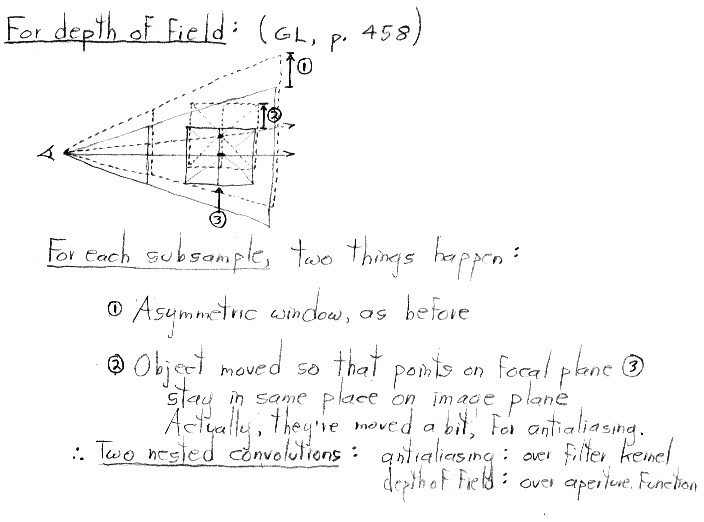 For depth of Field: (GL, p. 458)
①
②
③
For each subsample, two things happen:
① Asymmetric window, as before
② Object moved so that points on focal plane ③
stay in same place on image plane
Actually, they're moved a bit, for antialiasing.
∴ Two nested convolutions: antialiasing: over filter kernel
depth of field: over aperture function